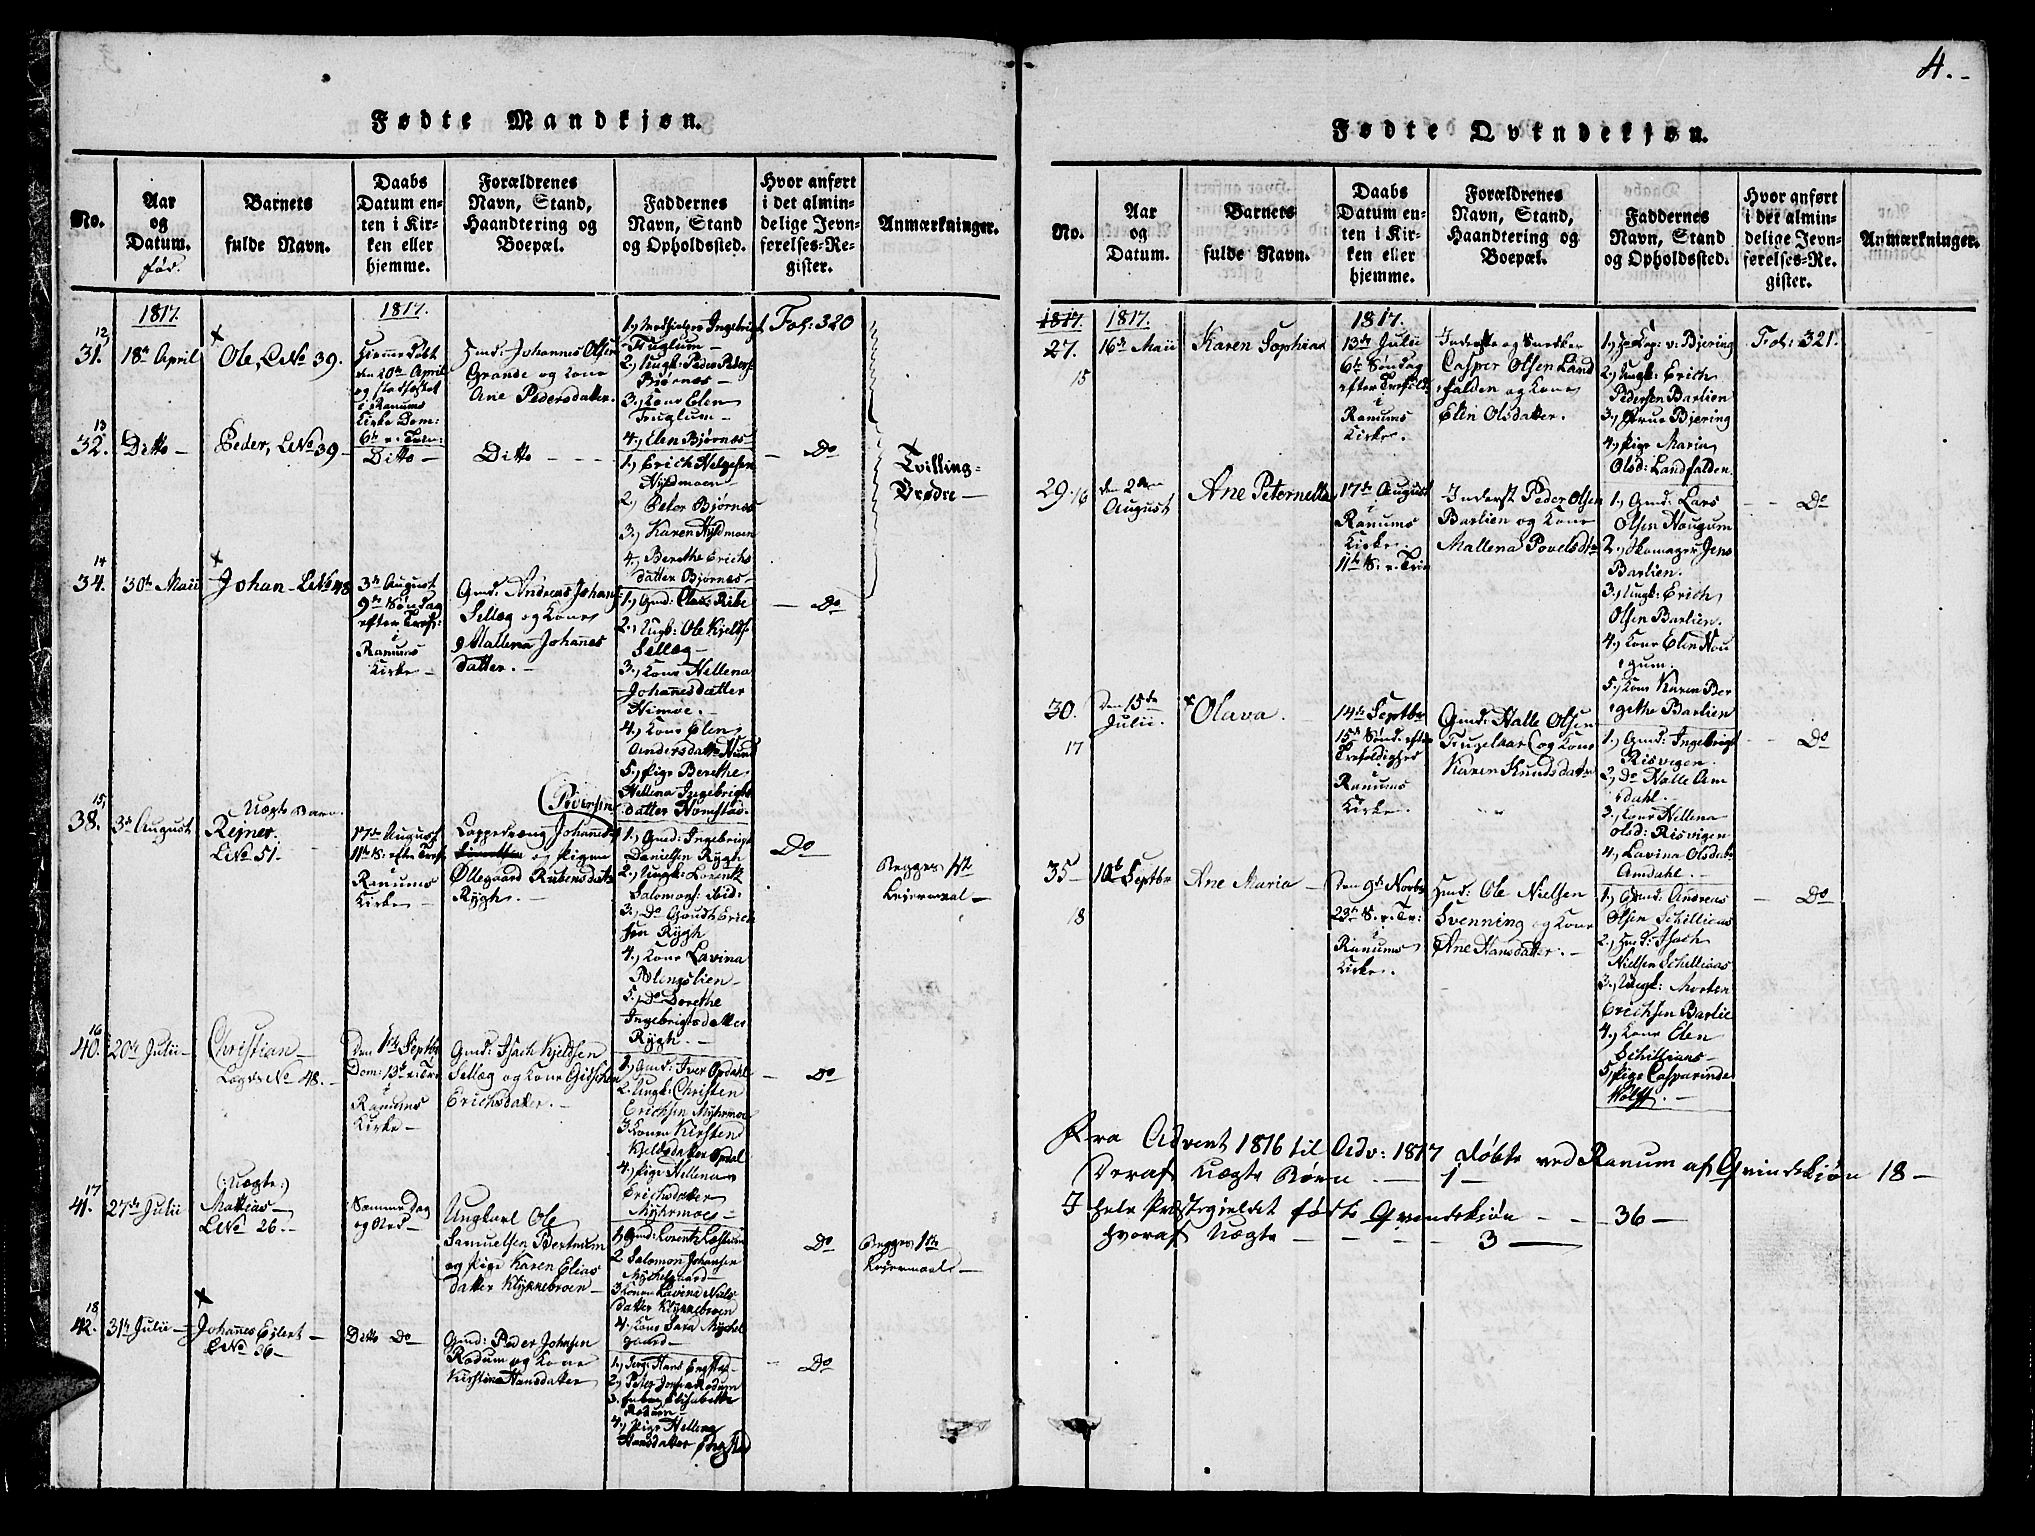 4.-
Fødte Mandkjøn.
No.
Aar
og
Datum.
fød.
Barnets
fulde Navn.
Daabs
Datum en-
ten i Kir-
ken eller
hjemme.
Forældrenes
Navn, Stand,
Haandtering og
Boepæl.
Faddernes
Navn, Stand
og Opholdssted.
Hvor anført
i det almin-
delige Jevn-
førelses-Re-
gister.
Anmærkninger.
1817.
1817.
12
31.
18de April
Ole, LNo 39.
Hjemmedøbt
den 20de April
og stadfæstet
i Ranums
Kirke Dom:
6te p. Trin:
Hmd: Johannes Olsen
Grande og Kone
Ane Pedersdatter.
Fuglum
2, Ungk: Peder Peders:
Bjørnes
3, Kone Elen
Fuglum
4, Elen Bjørnes
Fol: 320
13
32.
Ditto
Peder, LNo 39
Ditto
Ditto
1, Erich Helgesen
Nyldmoen
2, Peter Bjørnes
3, Karen Nyldmoen
4, Berethe Erichs
datter Bjørnes
Do
Tvilling-
Brødre
14
34.
30te Maii
Johan LNo 48
3de August
9de Søndag
efter Tref:
i
Ranums
Kirke
Gmd: Andreas Johans
Sellæg og Kone
Mallena Johannes
datter.
1, Gmd: Claus Ribe
2, Ungk: Ole Kjelds:
Sellæg
3, Kone Hellena
Johannesdatter
Himoe.
4, Kone Elen
Andersdatter
5, Pige Berethe
Hellina Ingebrigts
datter Homstad.
Do
15
38.
3de August
Uægte Barn
Rejner.
LNo 51.
17de August
11te S: efter Tref:
i
Ranums
Kirke
Johannes
(Iversen
og Pigen
Øllegaard Rubensdatter
Rygh.
1, Gmd: Ingebrigt
Danielsen Rygh
2, Ungk: Lorentz
Salomons: ibid:
3, Do Goudth Erich
sen Rygh
4, Kone Lavina
5, Do Dorethe
Ingebrigtsdatter
Rygh.
Do
Begges 1ste
Leiermaal
16
40.
20de Julii
Christian
Løge No 48.
den 1ste Septbr
Dom: 13de p. Tr:
i
Ranums
Kirke
Gmd: Isach Kjeldsen
Sellæg og Kone Gidschen
Erichsdatter.
1, Gmd: Iver Opdahl
2, Ungk: Christen
Erichsen Myhrmoe
3 Konen Kirsten
Kjeldsdatter Opdal
4, Pige Hellena
Erichsdatter
Myhrmoe
Do
17
41.
27de Julii
(Uægte)
Mathias
LNo 26.
Samme Dag
og Sted
Ungkarl Ole
Samuelsen Bertnum
og Pige Karen Elias
datter Klykkebroen
1, Gmd: Lorentz
2 Salomon Johansen
Mychelgaard
3 Konen Lavina Niels
datter Klykkebroen
4, Kone Sara Mychel
gaard
Do
Begges 1ste
Leiermaal
18
42.
31te Julii
Johannes Ejlert
LNo 36
Ditto Do
Gmd: Peder Johnsen
Rodum og Kone
Kirstina Hansdatter
1, Hans Engstad
2, Peter Johns: Rodum
3, Elisabeth
Rodum
4, Pige Hellena
Hansdatter Engstad
Do
Fødte Qvindekjøn.
No.
Aar
og
Datum.
Barnets
fulde Navn.
Daabs
Datum en-
ten i Kir-
ken eller
hjemme.
Forældrenes
Navn, Stand,
Haandtering og
Boepæl.
Faddernes
Navn, Stand
og Opholdssted.
Hvor anført
i det almin-
delige Jevn-
førelses-Re-
gister.
Anmærkninger.
1817.
1817.
1817.
27.
15
16de Maii
Karen Sophia
13de Julii
6te Søndag
efter Trefold:
i
Ranums
Kirke.
Inderste og Snedker
Casper Olsen Land
falden og Kone
Elen Olsdatter.
1, Hr Cap: v: Bjering
2, Ungk: Erich
Pedersen Barlien
3, Frue Bjering
4, Pige Maria
Olsd: Landfalden.
Fol: 321.
29.
16
den 2den
August
Ane Peternella
17de August
i
Ranums
Kirke.
11te S: p. Trin
Inderst Peder Olsen
Barlien og Kone
Mallena Povelsdtr
1, Gmd: Lars
Olsen Hougum
2, Skomager Jens
Barlien.
3, Ungk: Erich
Olsen Barlien.
4, Kone Elen Hou
gum.
5, Kone Karen Ber
gethe Barlien
Do
30.
17
Den 15de
Julii.
Olava.
14de Septbr
15de Sønd. efter
Trefoldighed
i
Ranums
Kirke.
Gmd: Halle Olsen
Fugelaas og Kone
Karen Knudsdatter
1, Gmd: Ingebrigt
Risvigen.
2, Do Halle Am
dahl.
3, Kone Hellena
Olsd: Risvigen
4, Lavina Olsdatr
Amdahl.
Do
35
18
10de Septbr
Ane Maria
Den 9de Novbr
23de S. p. Tr:
i
Ranums
Kirke.
Hmd: Ole Nielsen
Svenning og Kone
Ane Hansdatter.
1, Gmd: Andreas
Olsen Schilliaas
2, Hmd: Isach
Nielsen Schilliaas
3, Ungk: Morten
Erichsen Barlie
4, Kone Elen
Schilliaas
5, Pige Casparinde
Wolff.
Do
Fra Advent 1816 til Adv: 1817 døbte ved Ranum af Qvindekjøn 18
Deraf Uægte Børn. 1
I hele Præstegieldet fødte Qvindekjøn 36
hvoraf Uægte 3